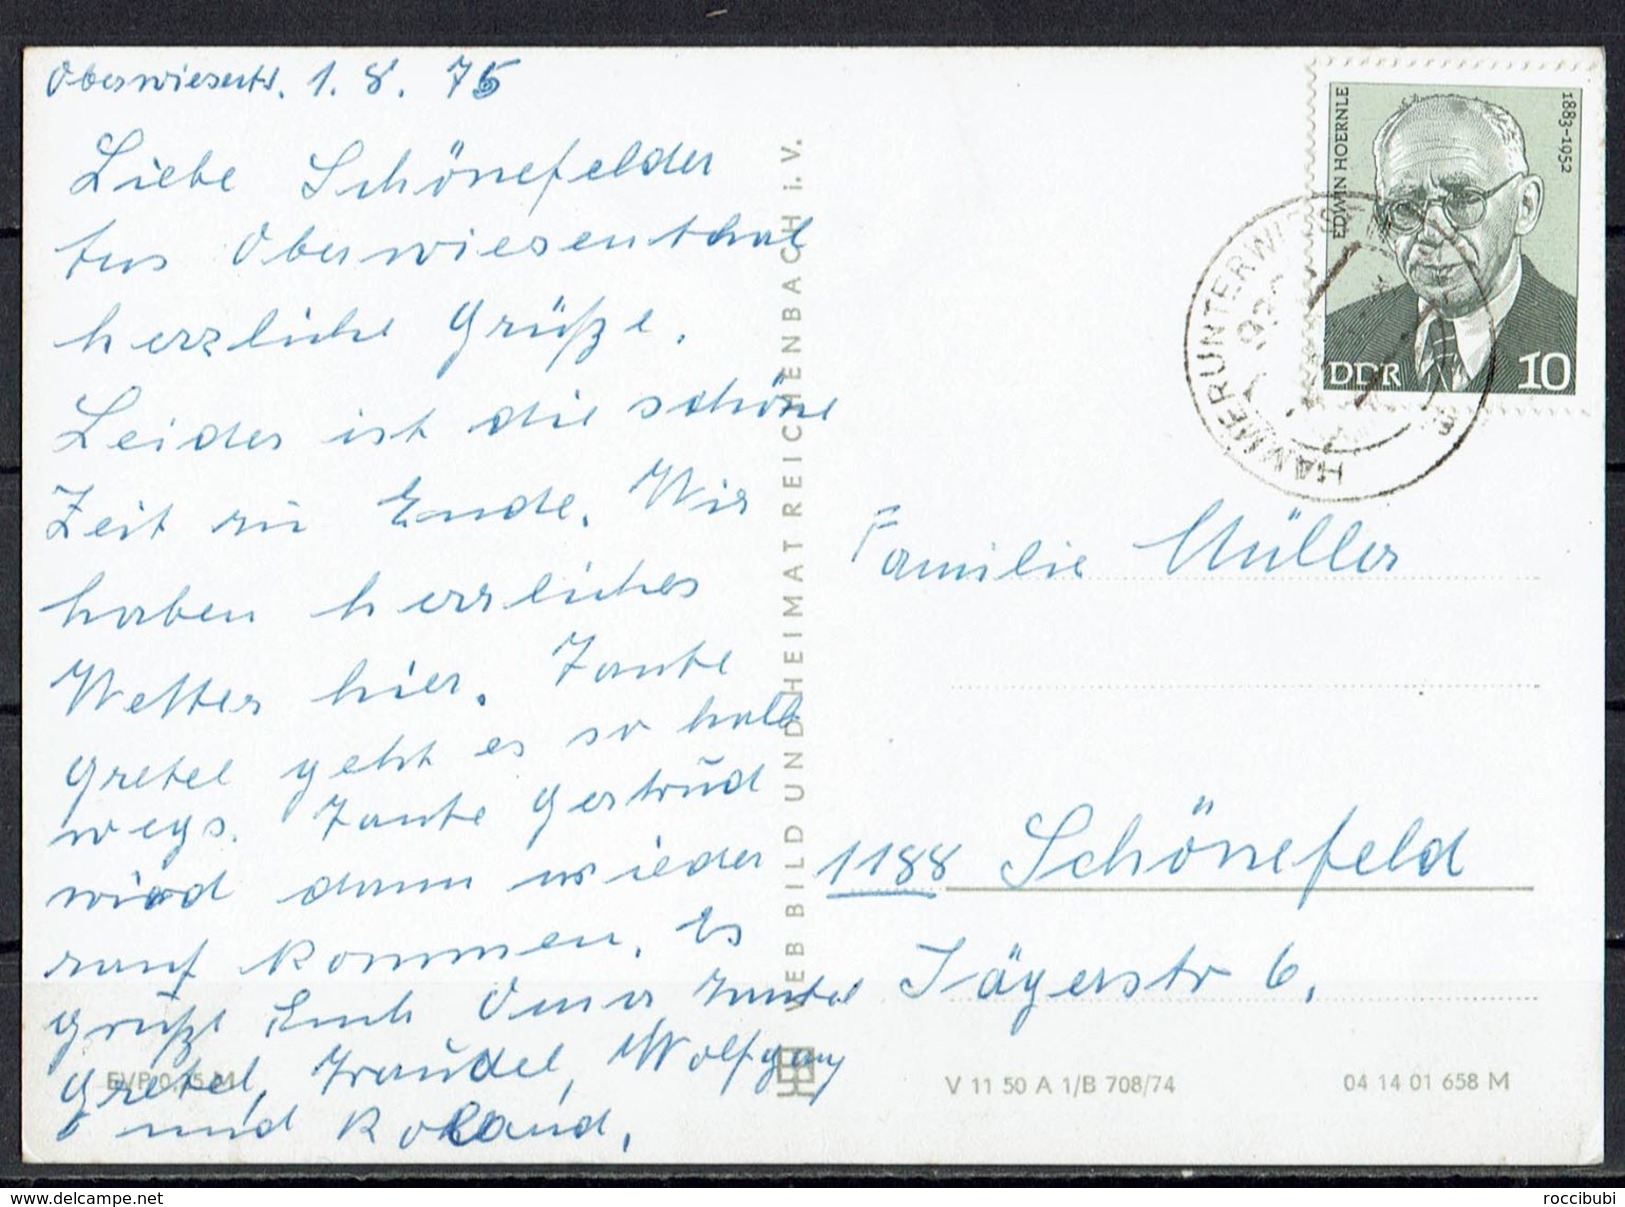 Oberwiesent. 1. 8. 75
Liebe Schönefelder
aus Oberwiesenthal
herzliche Grüße.
Leider ist die schöne
Zeit zu Ende. Wir
haben herrliches
Wetter hier. Tante
Gretel geht es so halb
wegs. Tante Gertrud
wird dann wieder
rauf kommen. Es
grüßt Euch Oma, Tante
Gretel, Traudel, Wolfgang
und Roland.
EVP 0,15 M
VEB BILD UND HEIMAT REICHENBACH i. V.
EDWIN HOERNLE
1883–1952
DDR 10
HAMMERUNTERWIESENTHAL
Familie Müller
1188 Schönefeld
Jägerstr 6.
V 11 50 A 1/B 708/74
04 14 01 658 M
delcampe.net
roccibubi